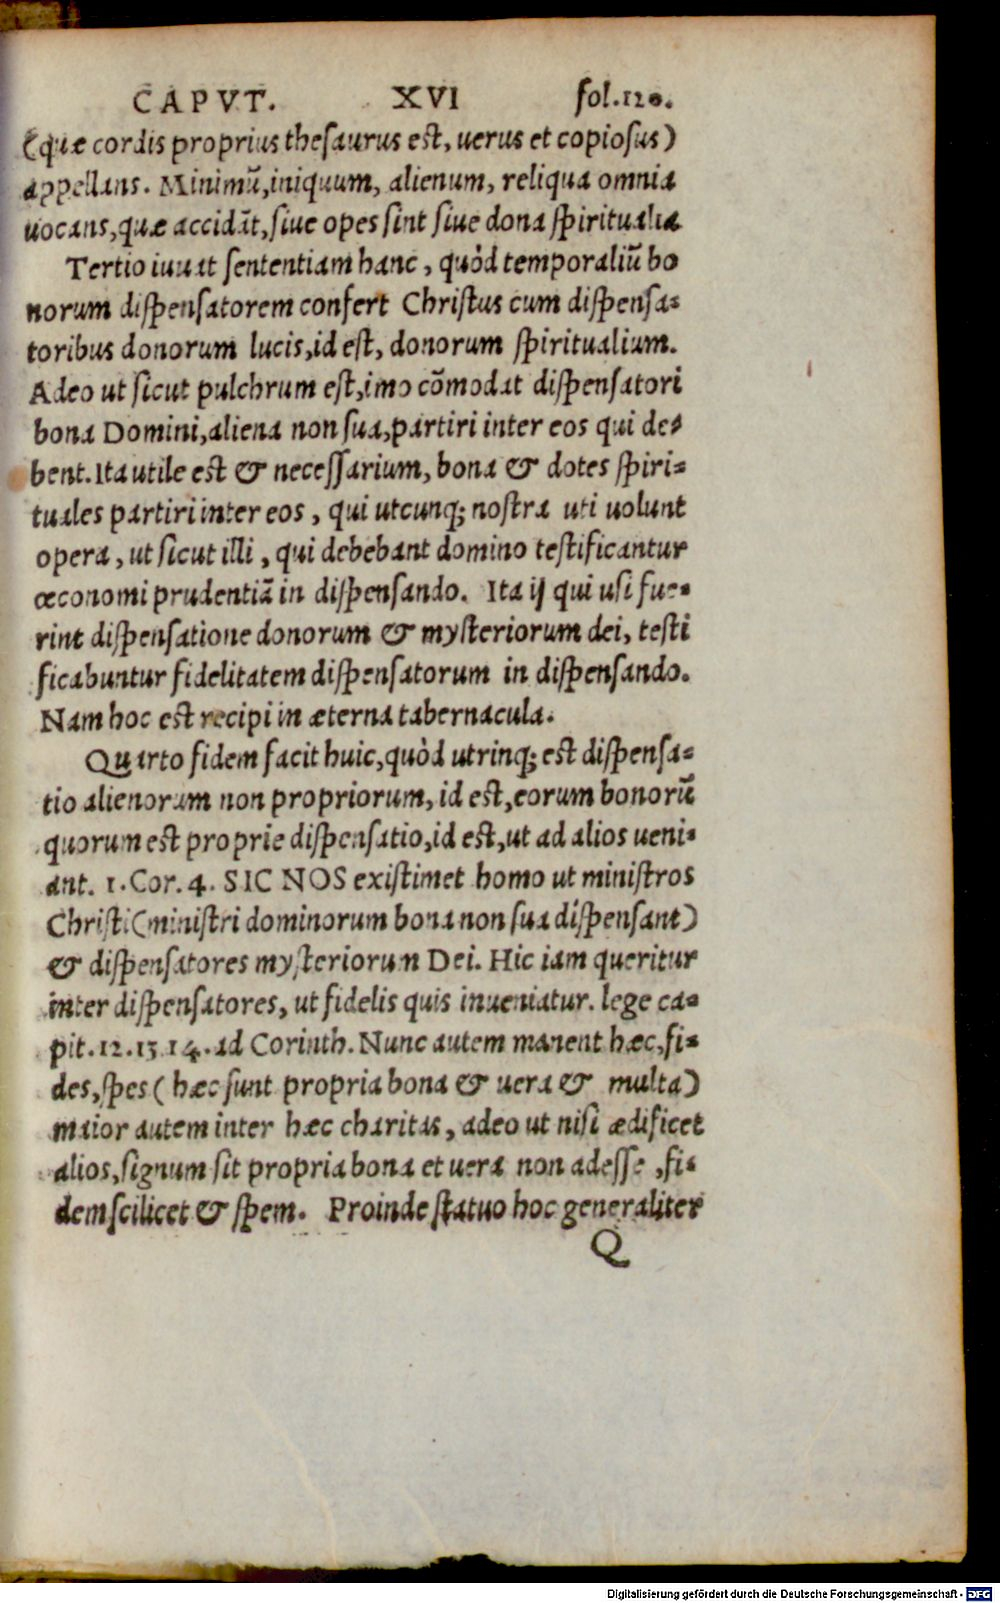 CAPVT. XVI fol.120.
(quæ cordis proprius thesaurus est, uerus et copiosus)
appellans. Minimũ, iniquum, alienum, reliqua omnia
uocans, quæ accidãt, siue opes sint siue dona spiritualia
Tertio iuuat sententiam hanc, quòd temporaliũ bo
norum dispensatorem confert Christus cum dispensa-
toribus donorum lucis, id est, donorum spiritualium.
Adeo ut sicut pulchrum est, imo cõmodat dispensatori
bona Domini, aliena non sua, partiri inter eos qui de-
bent. Ita utile est & necessarium, bona & dotes spiri-
tuales partiri inter eos, qui utcunq; nostra uti uolunt
opera, ut sicut illi, qui debebant domino testificantur
œconomi prudentiã in dispensando. Ita ij qui usi fue-
rint dispensatione donorum & mysteriorum dei, testi
ficabuntur fidelitatem dispensatorum in dispensando.
Nam hoc est recipi in æterna tabernacula.
Quarto fidem facit huic, quòd utrinq; est dispensa-
tio alienorum non propriorum, id est, eorum bonorũ
quorum est proprie dispensatio, id est, ut ad alios ueni-
ant. 1. Cor. 4. SIC NOS existimet homo ut ministros
Christi (ministri dominorum bona non sua dispensant)
& dispensatores mysteriorum Dei. Hic iam queritur
inter dispensatores, ut fidelis quis inueniatur. lege ca-
pit. 12. 13 14. ad Corinth. Nunc autem manent hæc, fi-
des, spes (hæc sunt propria bona & uera & multa)
maior autem inter hæc charitas, adeo ut nisi ædificet
alios, signum sit propria bona et uera non adesse, fi-
dem scilicet & spem. Proinde statuo hoc generaliter
Q
Digitalisierung gefördert durch die Deutsche Forschungsgemeinschaft - DFG